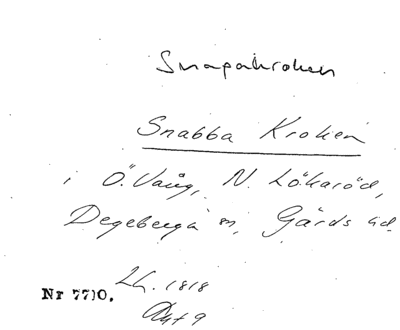 Snapakroken
Snabba Kroken
i Ö. Vång, N. Lökaröd,
Degeberga sn, Gärds hd.
Lh. 1818
Nr 7710.
Akt 9